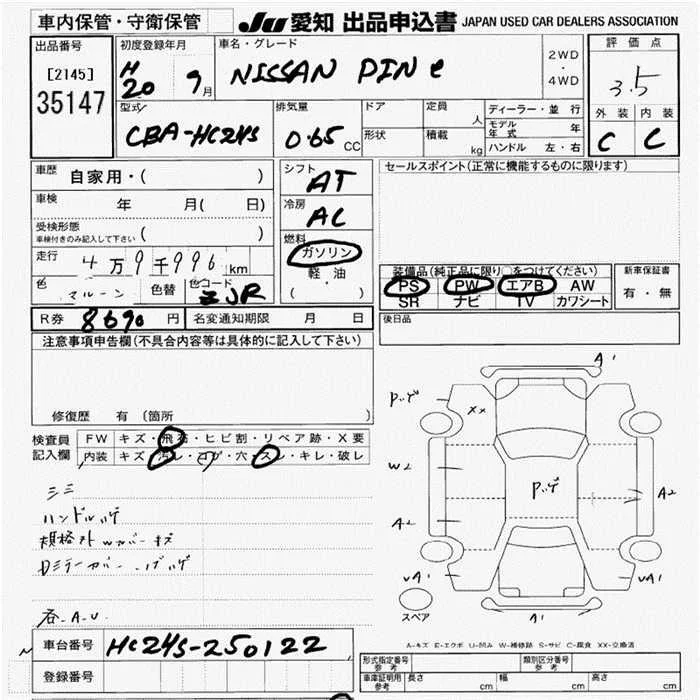 車内保管・守衛保管 JU 愛知 出品申込書 JAPAN USED CAR DEALERS ASSOCIATION
出品番号 初度登録年月 車名・グレード 2WD・4WD 評価点
[2145] H20 9月 NISSAN PINO 3.5
35147 型式 排気量 ドア 定員 人 ディーラー・並行 外装 内装
CBA-HC24S 0.65 CC 形状 積載 kg モデル年式 年 C C
ハンドル 左・右
車歴 自家用・( ) シフト AT セールスポイント(正常に機能するものに限ります)
車検 年 月( 日) 冷房 AC
受検形態 ( )
車検付きのみ記入して下さい
燃料 ガソリン・軽油・( )
走行 4万9千996km
色 マルーン 色替 色コード ZJR
装備品(純正品に限り○をつけてください) 新車保証書
PS PW エアB AW 有・無
SR ナビ TV カワシート
R券 8690円 名変通知期限 月 日 後日品
注意事項申告欄(不具合内容等は具体的に記入して下さい)
修復歴 有 (箇所 )
検査員記入欄 FW キズ・飛石・ヒビ割・リペア跡・X要
内装 キズ・汚レ・コゲ・穴・スレ・キレ・破レ
シミ
ハンドルハゲ
規格外Wカバーキズ
A1
XX
W2
A2
A2
UA1
UA1
A1
スペア
A-キズ E-エクボ U-凹み W-補修跡 S-サビ C-腐食 XX-交換済
車台番号 HC24S-250122
登録番号
形式指定番号 参考 類別区分番号 参考
車庫証明用 参考 長さ cm 幅 cm 高さ cm